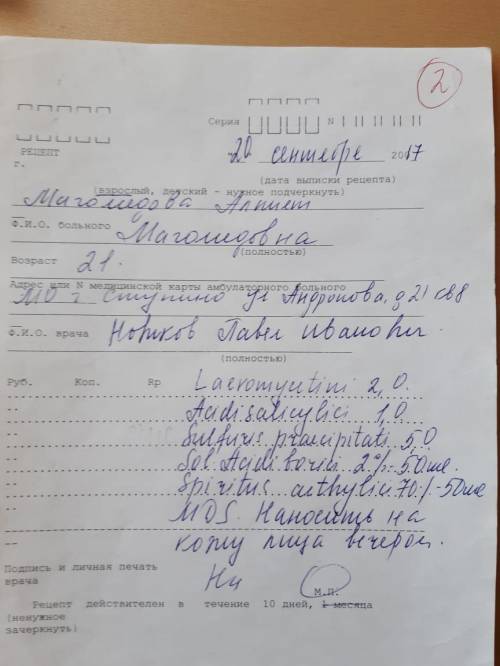 2
Серия N
РЕЦЕПТ 20 сентября 2017
г.
(дата выписки рецепта)
(взрослый, детский - нужное подчеркнуть)
Магомедова
Ф.И.О. больного Магомедовна
(полностью)
Возраст 21.
Адрес или N медицинской карты амбулаторного больного
МО г Ступино ул Андропова, д 21 кв 8
Ф.И.О. врача Ножков Павел Иванович
(полностью)
Руб. Коп. Rp Laevomycetini 2,0.
Acidi salicylici 1,0.
Sulfuris praecipitati 5.0
Sol. Acidi borici 2%-50мл.
Spiritus aethylici 70%-50мл
MDS. Наносить на
кожу лица вечером.
Подпись и личная печать
врача М.П.
Рецепт действителен в течение 10 дней, 1 месяца
(ненужное
зачеркнуть)